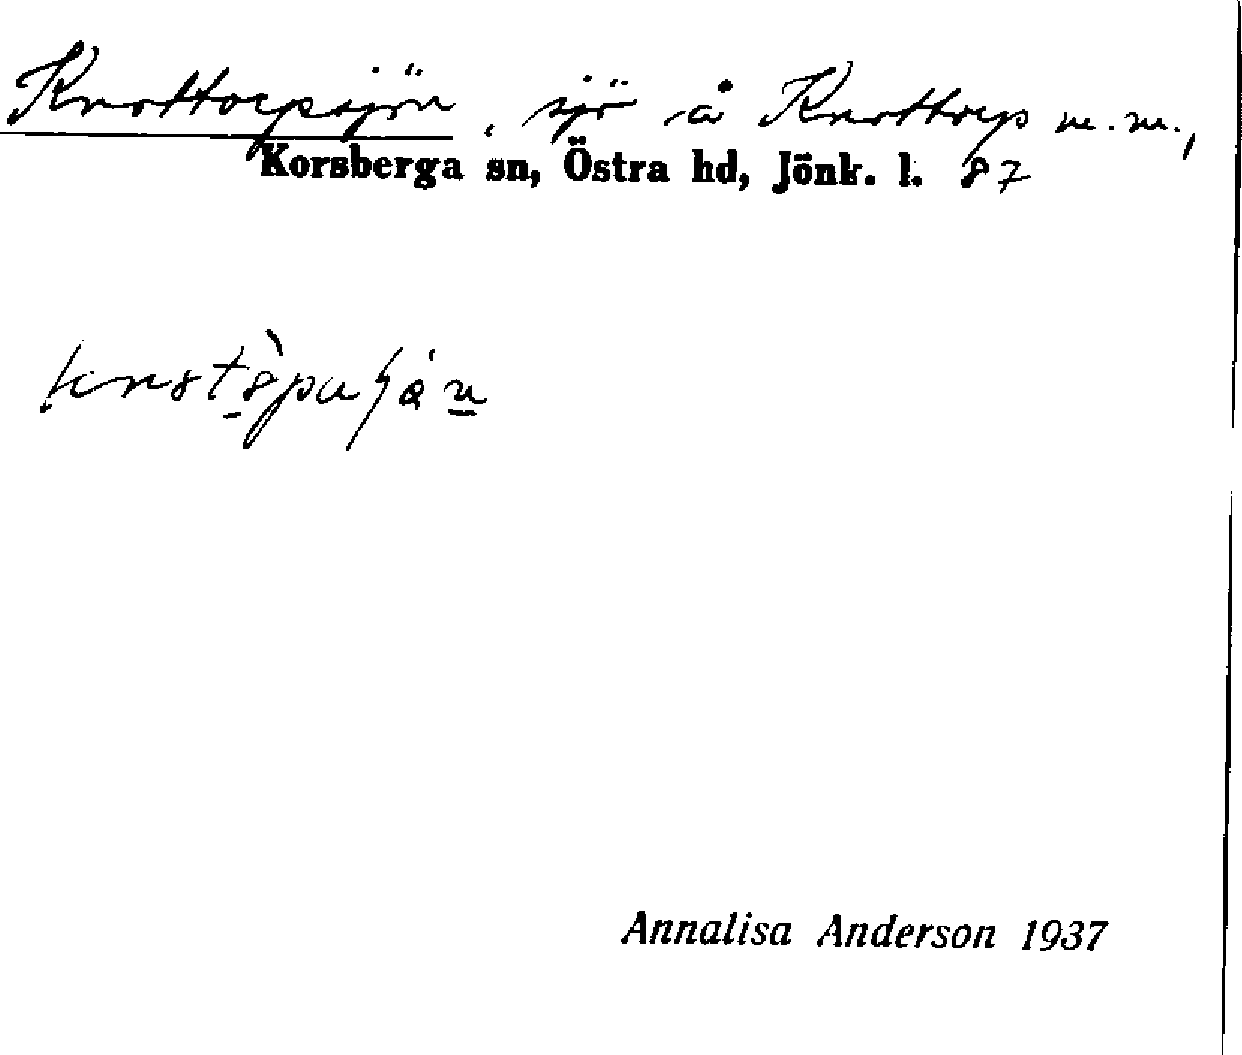 Knottorpssjön, sjö å Knottorp m.m.,
Korsberga sn, Östra hd, Jönk. l. 87
Annalisa Anderson 1937